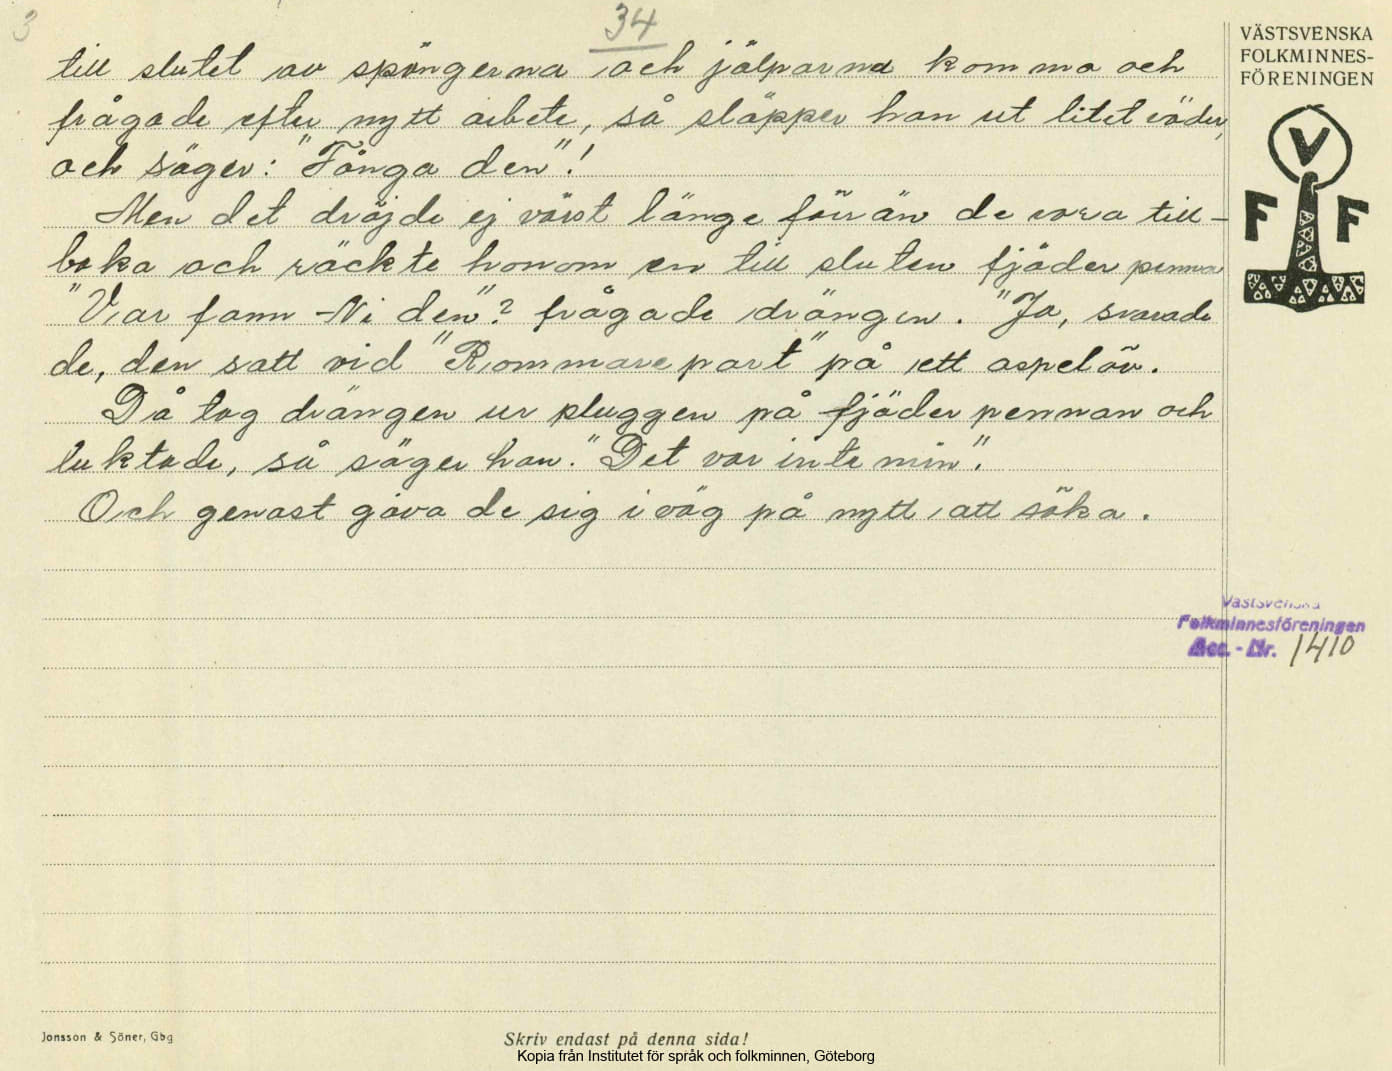 3
34
till slutet av spöngerna och jälparna komma och
frågade efter nytt arbete, så släpper han ut litet väder,
och säger: "Fånga den"!
Men det dröjde ej värst länge förrän de vora till-
baka och räckte honom en till sluten fjäder penna
"Var fann Ni den"? frågade drängen. "Jo, svarade
de, den satt vid "Rommareport" på ett aspelöv.
Då tog drängen ur pluggen på fjäder pennan och
luktade, så säger han. "Det var inte min".
Och genast gåva de sig i väg på nytt att söka.
VÄSTSVENSKA
FOLKMINNES-
FÖRENINGEN
V
F F
Västsvenska
Folkminnesföreningen
Acc. - Nr. 1410
Jonsson & Söner, Gbg
Skriv endast på denna sida!
Kopia från Institutet för språk och folkminnen, Göteborg